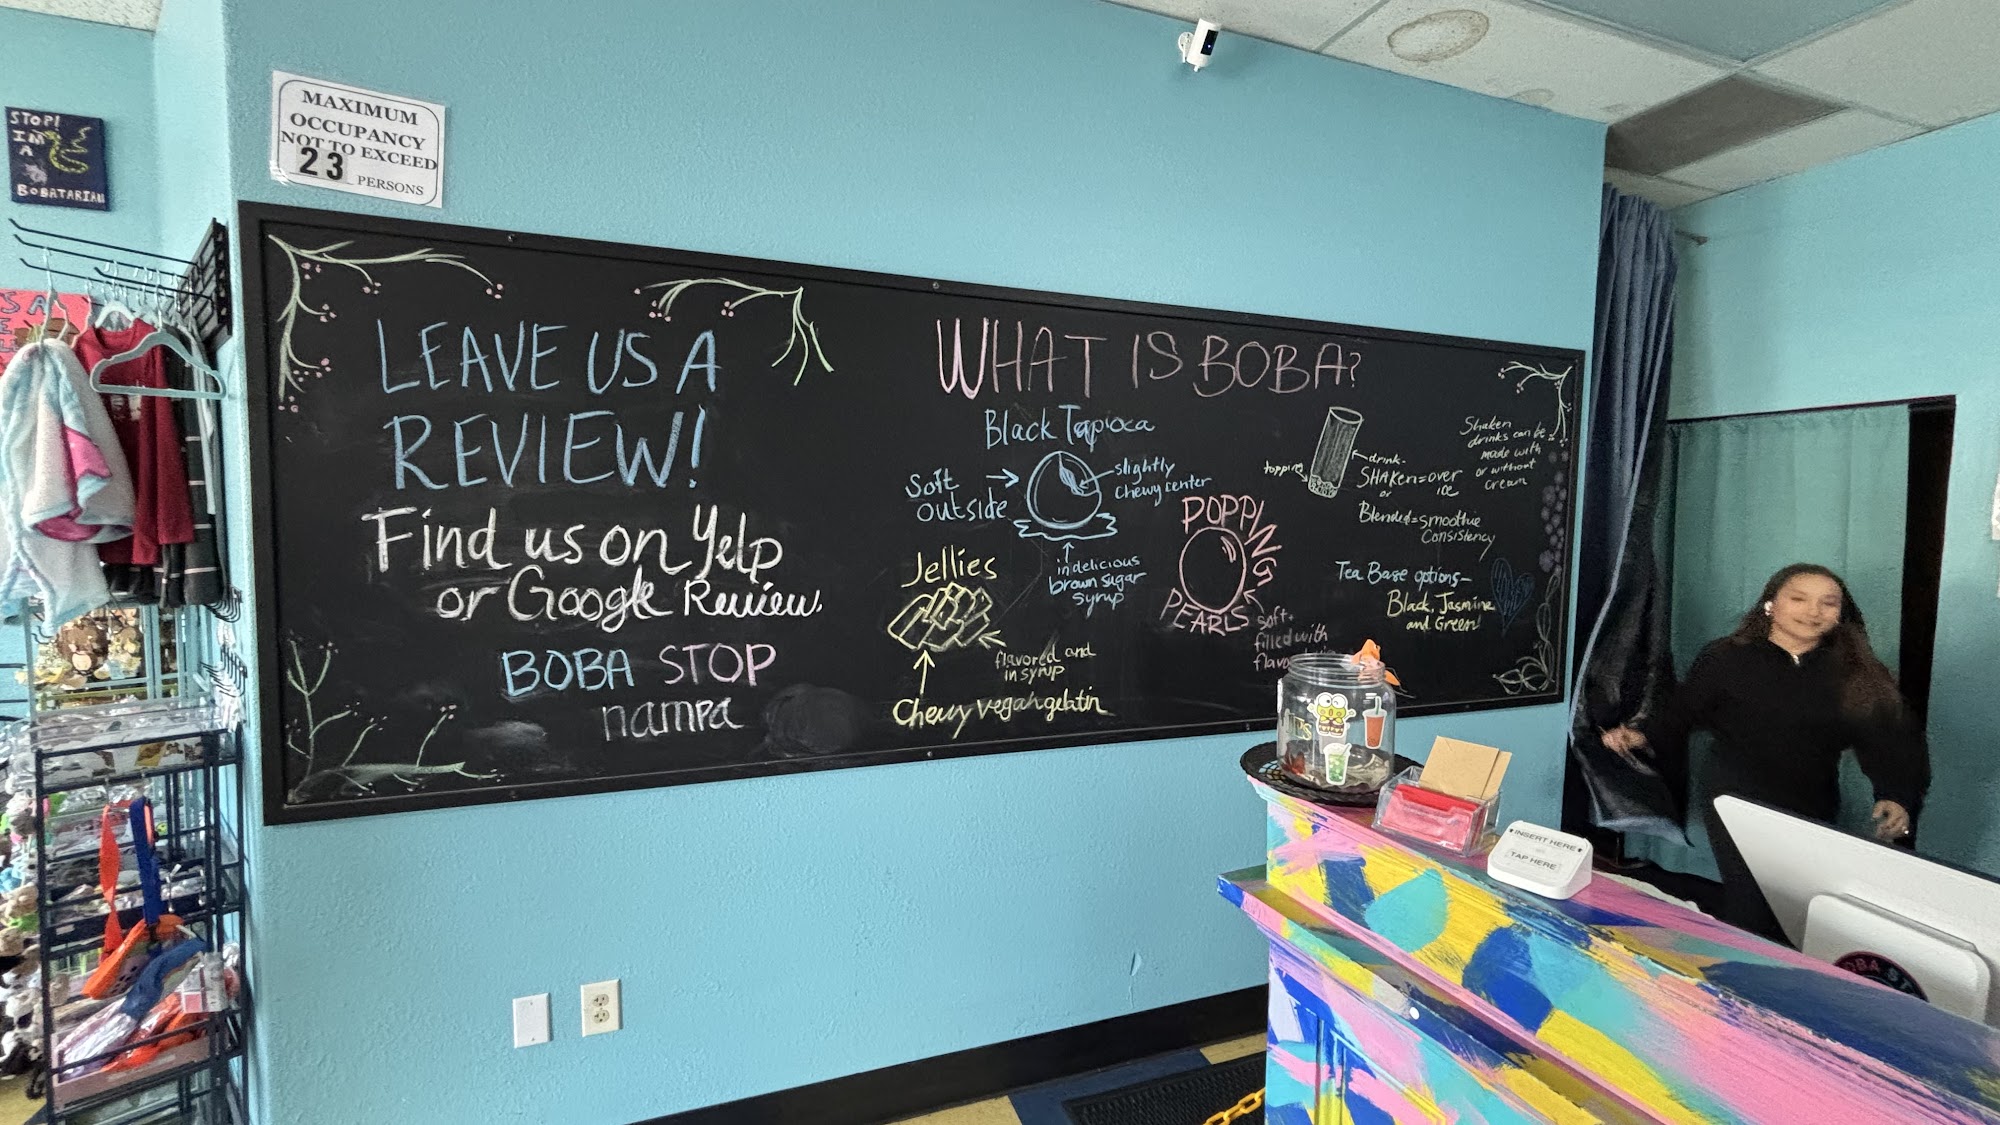 STOP!
IM
A
BOBATARIAN
MAXIMUM
OCCUPANCY
NOT TO EXCEED
23 PERSONS
S A
LEAVE US A
REVIEW!
Find us on Yelp
or Google Review.
BOBA STOP
nampa
WHAT IS BOBA?
Black Tapioca
Soft
outside
slightly
chewy center
in delicious
brown sugar
syrup
Jellies
flavored and
in syrup
Chewy vegan gelatin
POPPING
PEARLS
soft +
filled with
topping
drink
SHAKEN = over
ice
or
Blended = smoothie
Consistency
Shaken
drinks can be
made with
or without
cream
Tea Base options -
Black, Jasmine
and Green!
INSERT HERE
TAP HERE